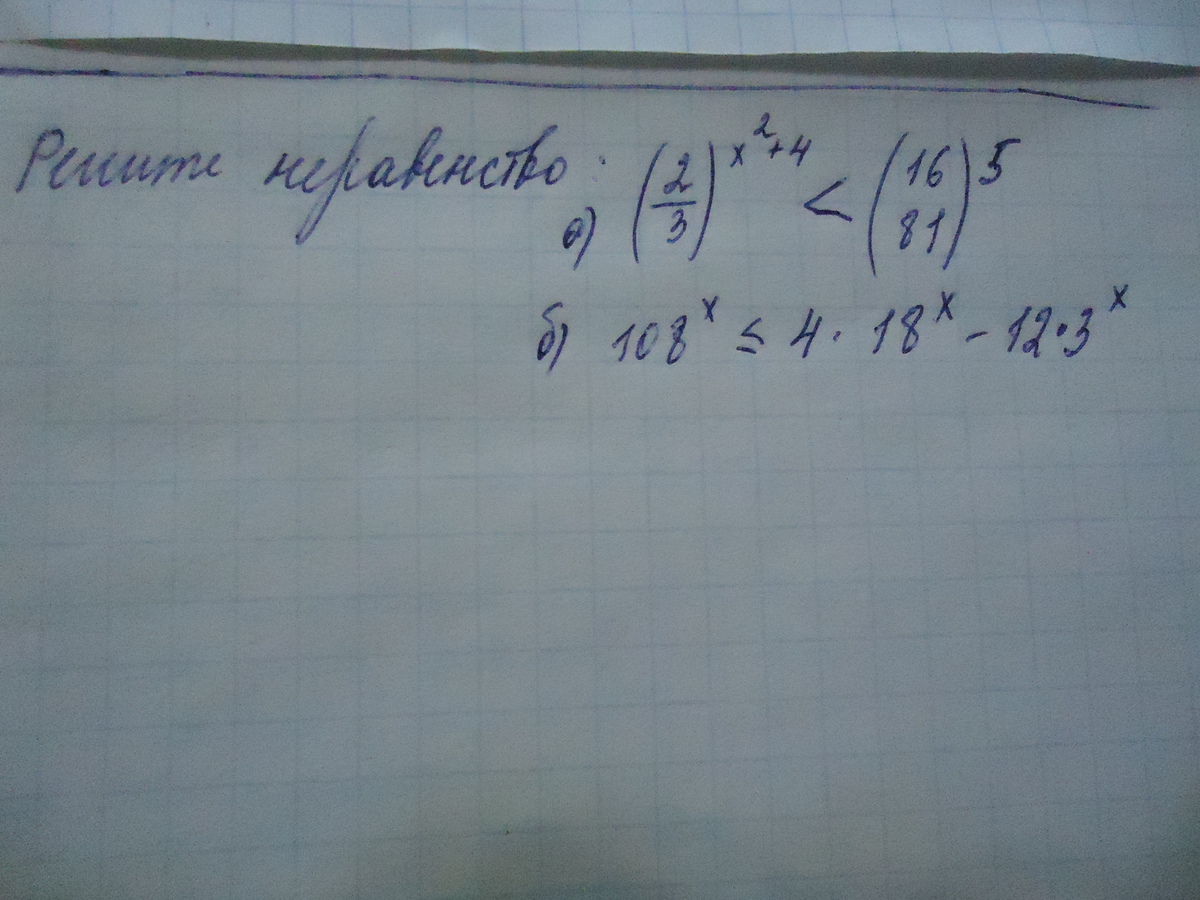 Решите неравенство:
а) (2/3)^(x^2+4) < (16 81)^5
б) 108^x ≤ 4 · 18^x - 12·3^x